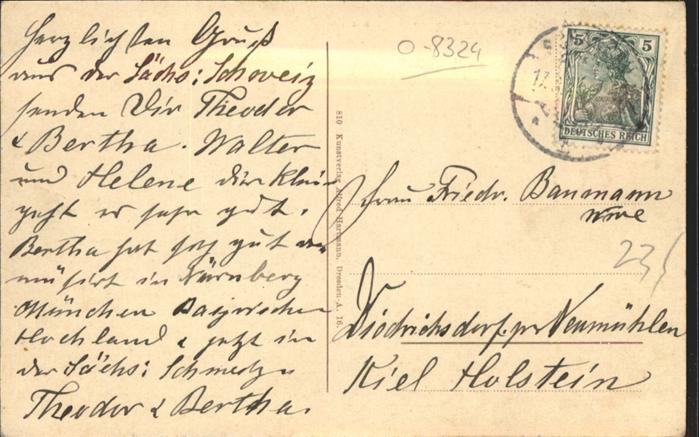 Herzlichen Gruß
aus der Sächs: Schweiz
senden Dir Theodor
& Bertha. Walter
und Helene die Klein
geht es sehr gut.
Bertha hat sich gut
amüsirt in Nürnberg
München Bayrischen
Hochland & jetzt in
der Sächs: Schweiz
Theodor & Bertha.
810 Kunstverlag Alfred Hartmann, Dresden-A. 16.
O-8324
5 5
DEUTSCHES REICH
Frau Friedr. Baumann
Wwe
23
Diedrichsdorf pr Neumühlen
Kiel Holstein